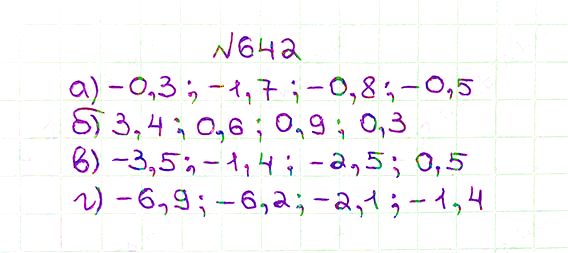 №642
а) -0,3; -1,7; -0,8; -0,5
б) 3,4; 0,6; 0,9; 0,3
в) -3,5; -1,4; -2,5; 0,5
г) -6,9; -6,2; -2,1; -1,4